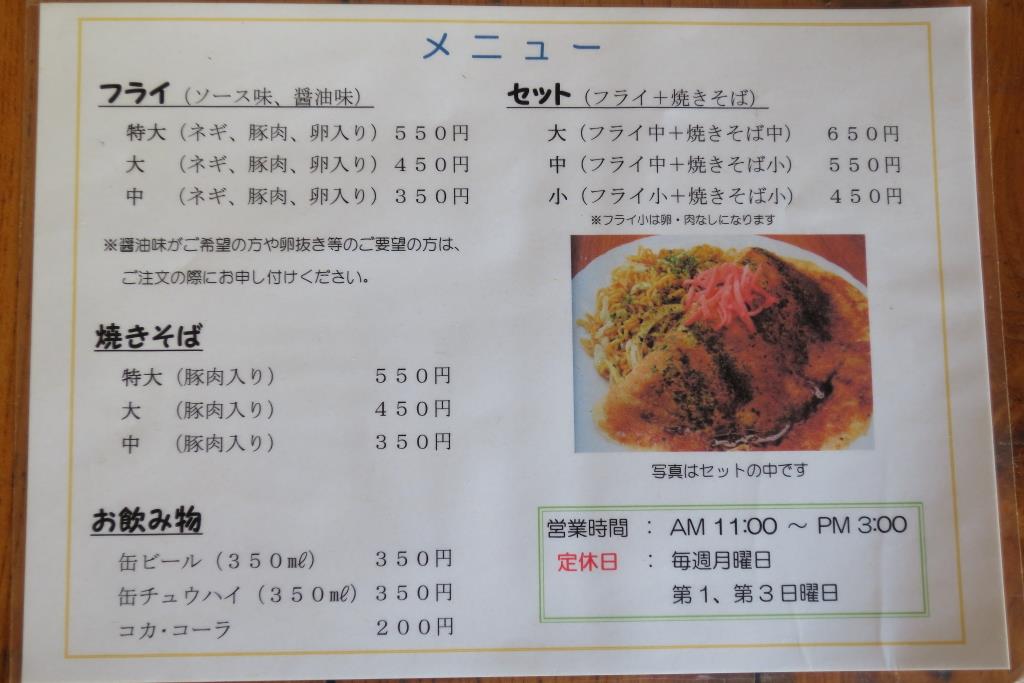 メニュー
フライ（ソース味、醤油味）
特大（ネギ、豚肉、卵入り）５５０円
大　（ネギ、豚肉、卵入り）４５０円
中　（ネギ、豚肉、卵入り）３５０円
※醤油味がご希望の方や卵抜き等のご要望の方は、
ご注文の際にお申し付けください。
焼きそば
特大（豚肉入り）　５５０円
大　（豚肉入り）　４５０円
中　（豚肉入り）　３５０円
お飲み物
缶ビール（３５０㎖）　３５０円
缶チュウハイ（３５０㎖）３５０円
コカ・コーラ　２００円
セット（フライ＋焼きそば）
大（フライ中＋焼きそば中）　６５０円
中（フライ中＋焼きそば小）　５５０円
小（フライ小＋焼きそば小）　４５０円
※フライ小は卵・肉なしになります
写真はセットの中です
営業時間　：　AM 11:00　～　PM 3:00
定休日　：　毎週月曜日
第１、第３日曜日